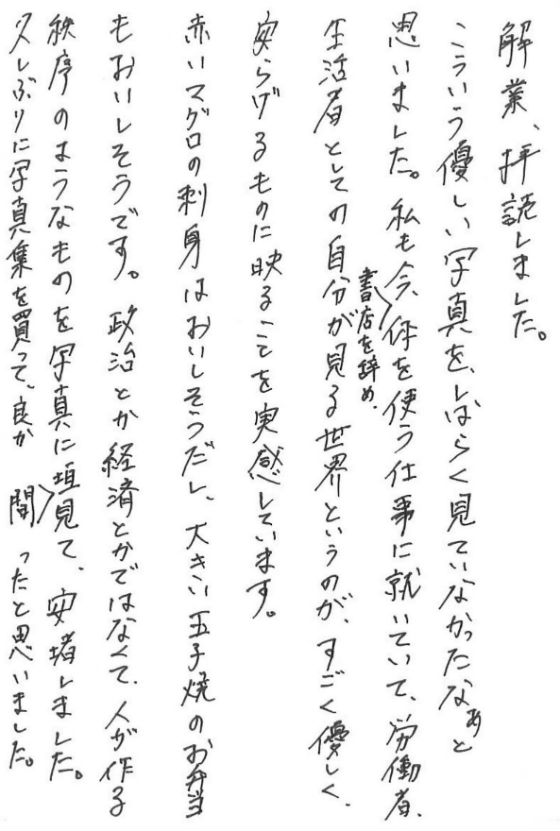 解業、拝読しました。
こういう優しい写真を、しばらく見ていなかったなぁと
思いました。私も今、書店を辞め、体を使う仕事に就いていて、労働者、
生活者としての自分が見る世界というのが、すごく優しく、
安らげるものに映ることを実感しています。
赤いマグロの刺身はおいしそうだし、大きい玉子焼のお弁当
もおいしそうです。政治とか経済とかではなくて、人が作る
秩序のようなものを写真に垣間見て、安堵しました。
久しぶりに写真集を買って、良かったと思いました。